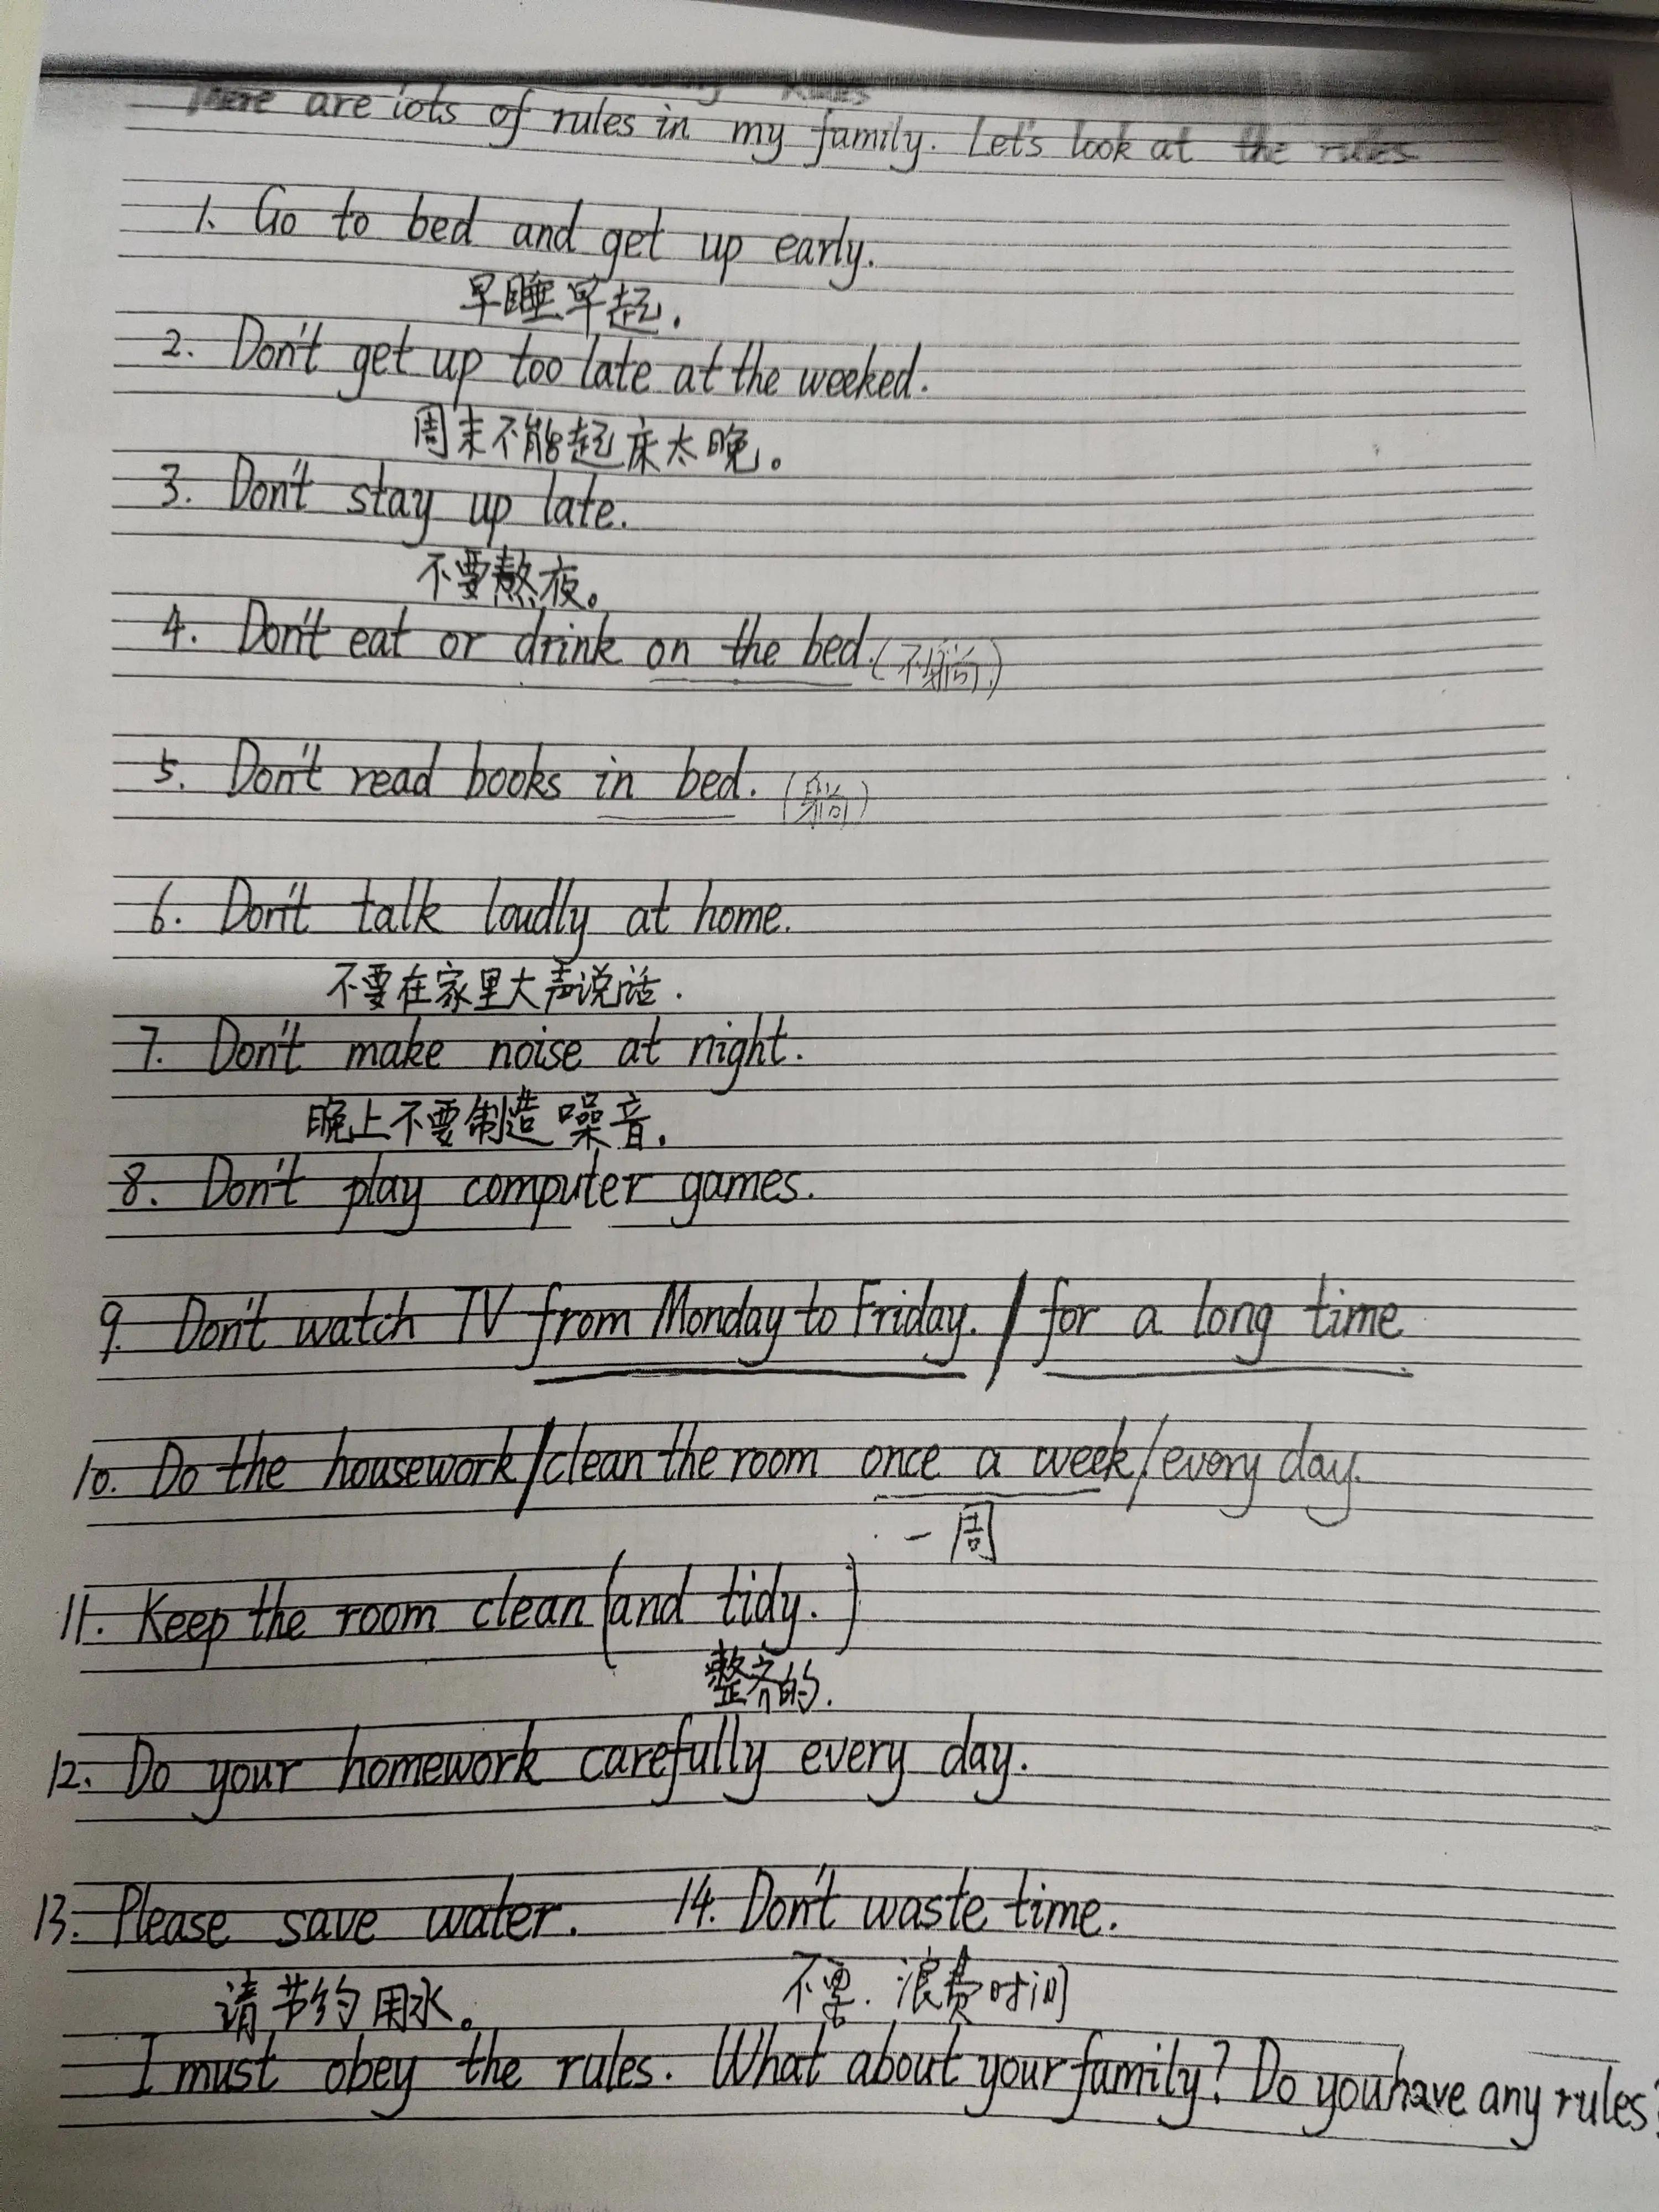 Rules
There are lots of rules in my family. Let's look at the rules
1. Go to bed and get up early.
早睡早起.
2. Don't get up too late at the weeked.
周末不能起床太晚。
3. Don't stay up late.
不要熬夜。
4. Don't eat or drink on the bed. (不躺)
5. Don't read books in bed. (躺)
6. Don't talk loudly at home.
不要在家里大声说话.
7. Don't make noise at night.
晚上不要制造噪音.
8. Don't play computer games.
9. Don't watch TV from Monday to Friday. / for a long time
10. Do the housework/clean the room once a week/every day.
一周
11. Keep the room clean (and tidy.)
整齐的.
12. Do your homework carefully every day.
13. Please save water. 14. Don't waste time.
请节约用水。 不要.浪费时间
I must obey the rules. What about your family? Do you have any rules?